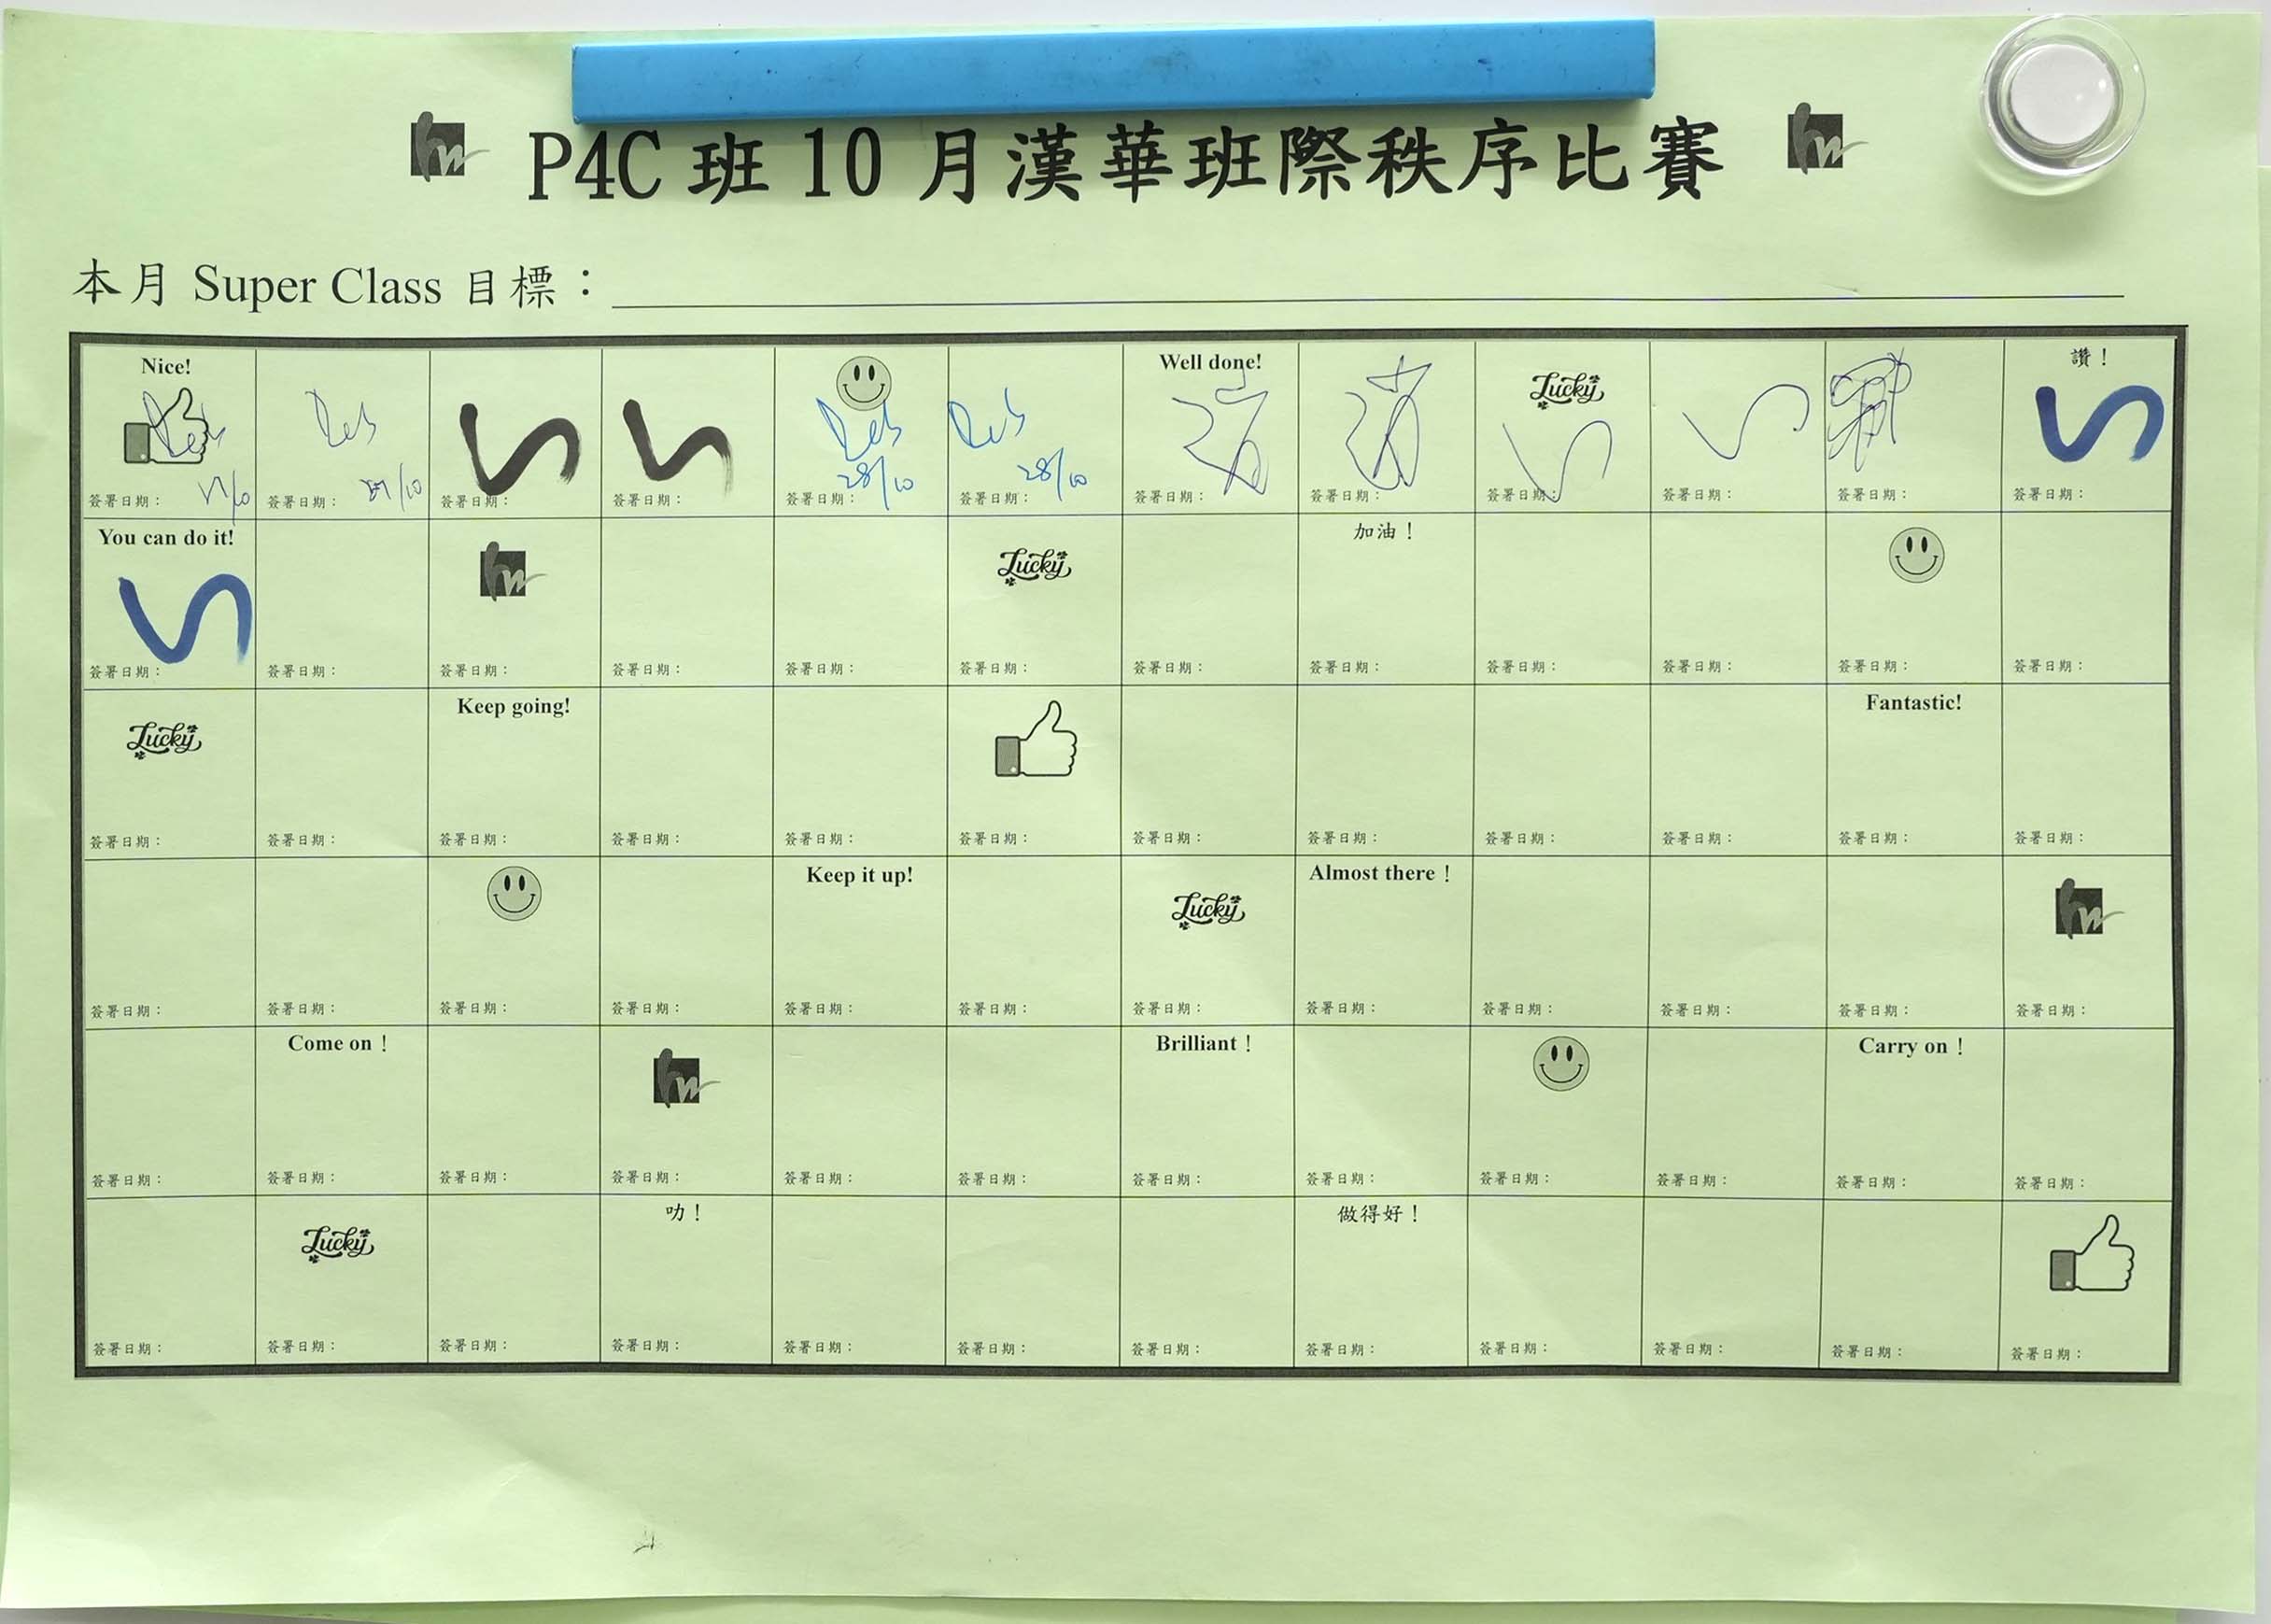 P4C 班 10 月漢華班際秩序比賽
本月 Super Class 目標：
Nice! Well done! Lucky 讚！
28/10 28/10
簽署日期： 簽署日期： 簽署日期： 簽署日期： 簽署日期： 簽署日期： 簽署日期： 簽署日期： 簽署日期： 簽署日期： 簽署日期： 簽署日期：
You can do it! Lucky 加油！
簽署日期： 簽署日期： 簽署日期： 簽署日期： 簽署日期： 簽署日期： 簽署日期： 簽署日期： 簽署日期： 簽署日期： 簽署日期： 簽署日期：
Lucky Keep going! Fantastic!
簽署日期： 簽署日期： 簽署日期： 簽署日期： 簽署日期： 簽署日期： 簽署日期： 簽署日期： 簽署日期： 簽署日期： 簽署日期： 簽署日期：
Keep it up! Lucky Almost there！
簽署日期： 簽署日期： 簽署日期： 簽署日期： 簽署日期： 簽署日期： 簽署日期： 簽署日期： 簽署日期： 簽署日期： 簽署日期： 簽署日期：
Come on！ Brilliant！ Carry on！
簽署日期： 簽署日期： 簽署日期： 簽署日期： 簽署日期： 簽署日期： 簽署日期： 簽署日期： 簽署日期： 簽署日期： 簽署日期： 簽署日期：
Lucky 叻！ 做得好！
簽署日期： 簽署日期： 簽署日期： 簽署日期： 簽署日期： 簽署日期： 簽署日期： 簽署日期： 簽署日期： 簽署日期： 簽署日期： 簽署日期：